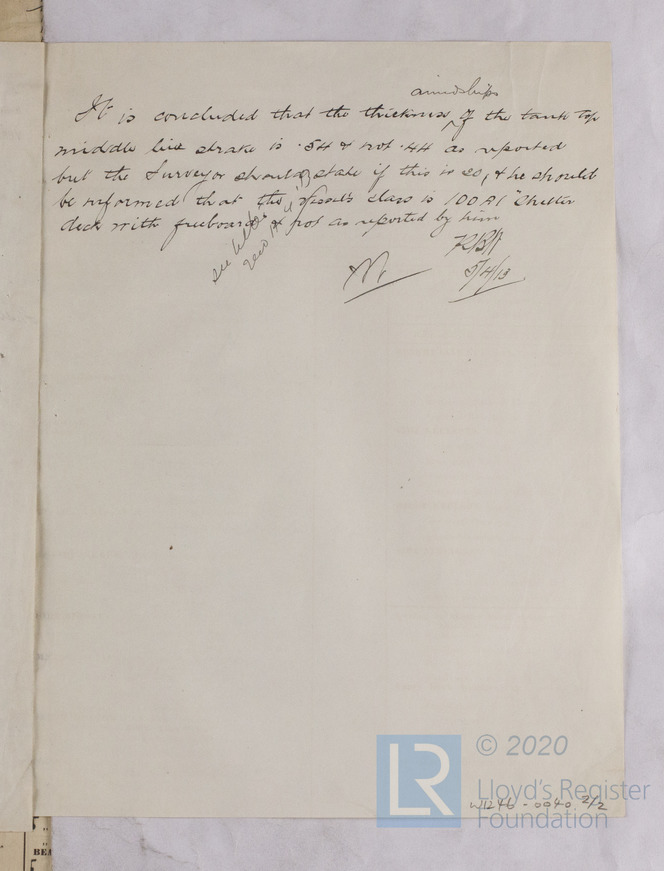 amidships
It is concluded that the thickness of the tank top
middle line strake is .54 & not .44 as reported
but the Surveyor should state if this is so, & he should
be informed that the Vessel's class is 100A1 "Shelter
deck with freeboard" & not as reported by him
see letter
5/4/13
LR
© 2020
Lloyd's Register
Foundation
W1246-0040 2/2
BEA